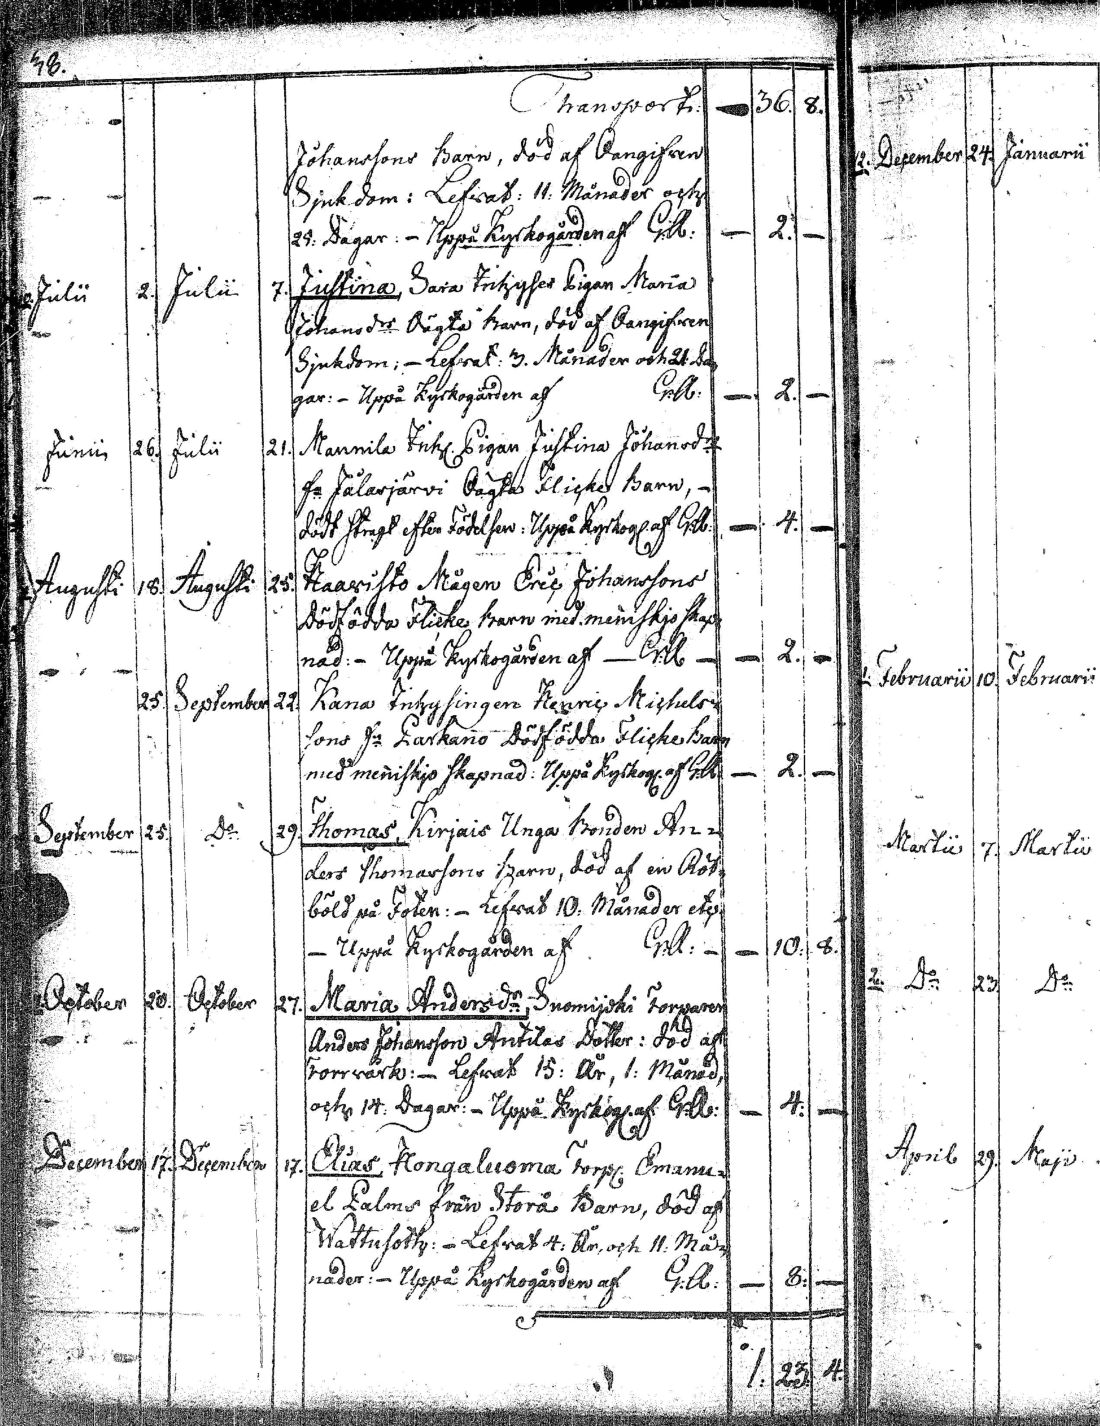 38.
Transport: — 36. 8.
Johanssons Barn, död af Oangifven
Sjukdom: Lefvat: 11: Månader och
25: Dagar: – Uppå Kyrkogården af Gr:ll: — 2. —
Julii 2. Julii 7. Justina, Sara Inhyses Pigan Maria
Johansd:r Oägta Barn, död af Oangifven
Sjukdom: – Lefvat: 3. Månader och 21. Da-
gar: – Uppå Kyrkogården af Gr:ll: — 2. —
Junii 26. Julii 21. Mannila Inh. Pigan Justina Johansd:r
fr. Jalasjärvi Oägta Flicke Barn, –
dödt stragt efter Födelsen: Uppå Kyrkog. af Gr:ll: — 4. —
Augusti 18. Augusti 25. Haavisto Mågen Eric Johanssons
Dödfödda Flicke Barn med menskjo skap-
nad: – Uppå Kyrkogården af — Gr:ll — — 2. —
25. September 22. Kana Inhysingen Henric Michels-
sons fr. Parkano Dödfödda Flicke Barn
med menniskjo skapnad: Uppå Kyrkog. af Gr:ll. — 2. —
September 25. D:o 29. Thomas, Kirjais Unga Bonden An-
ders Thomassons Barn, död af en Röt-
böld på Foten: – Lefvat 10: Månader etc.
– Uppå Kyrkogården af Gr:ll: – — 10. 8.
October 20. October 27. Maria Andersd:r, Suomijoki Torparen
Anders Johansson Antilas Dotter: död af
Torrvärk: – Lefvat 15: År, 1: Månad,
och 14: Dagar: – Uppå Kyrkog. af Gr:ll: — 4. —
December 17. December 17. Elias, Hongaluoma Torp. Emanu-
el Palms från Storå Barn, död af
Wattusoth: – Lefvat 4: År, och 11: Må-
nader: – Uppå Kyrkogården af Gr:ll: — 8: —
1: 23. 4.
12. December 24. Januarii
1. Februarii 10. Februarii
Martii 7. Martii
2. D:o 23 D:o
April 29. Maji